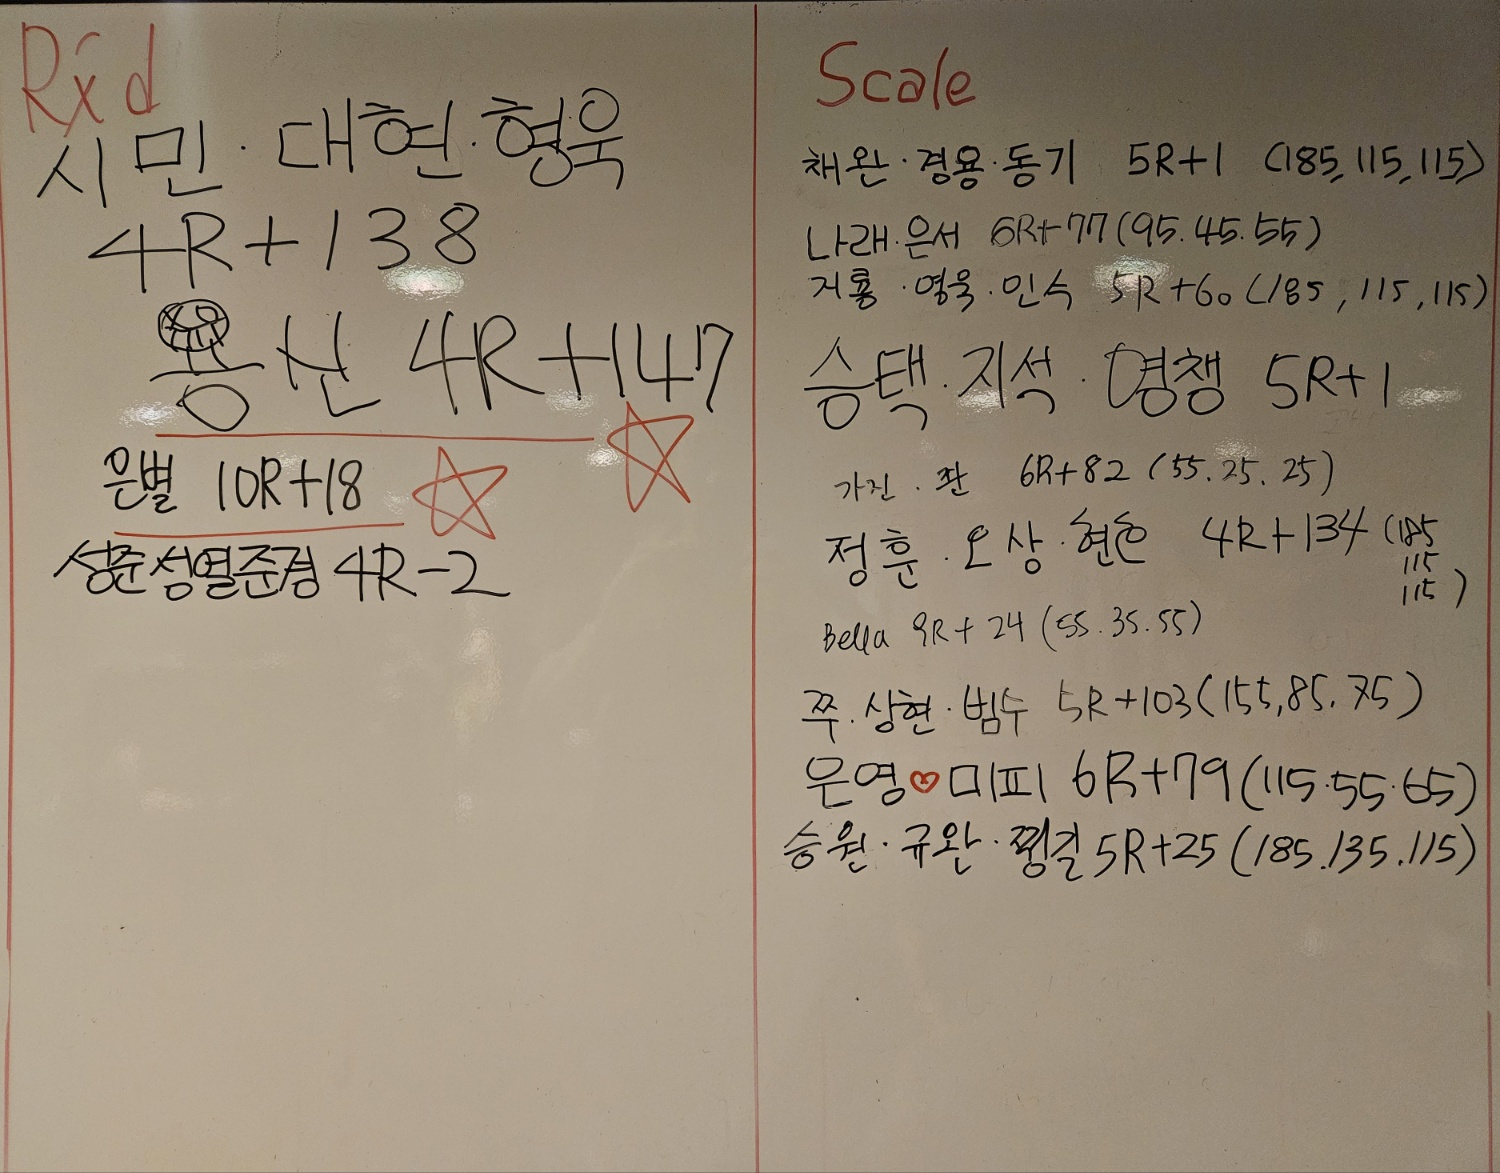 Rx'd
시민·대현·형욱
4R+138
용신 4R+147
은별 10R+18
성준성열준경 4R-2
Scale
채완·경용·동기 5R+1 (185,115,115)
나래·은서 6R+77(95.45.55)
거룡·영욱·인수 5R+60(185,115,115)
승택·지석·명챙 5R+1
가진·쫜 6R+82 (55.25.25)
정훈·오상·현호 4R+134 (185
115
115)
Bella 9R+24 (55.35.55)
쭈·상현·범수 5R+103(155,85.75)
은영♡미피 6R+79(115.55.65)
승원·규완· 5R+25 (185.135.115)